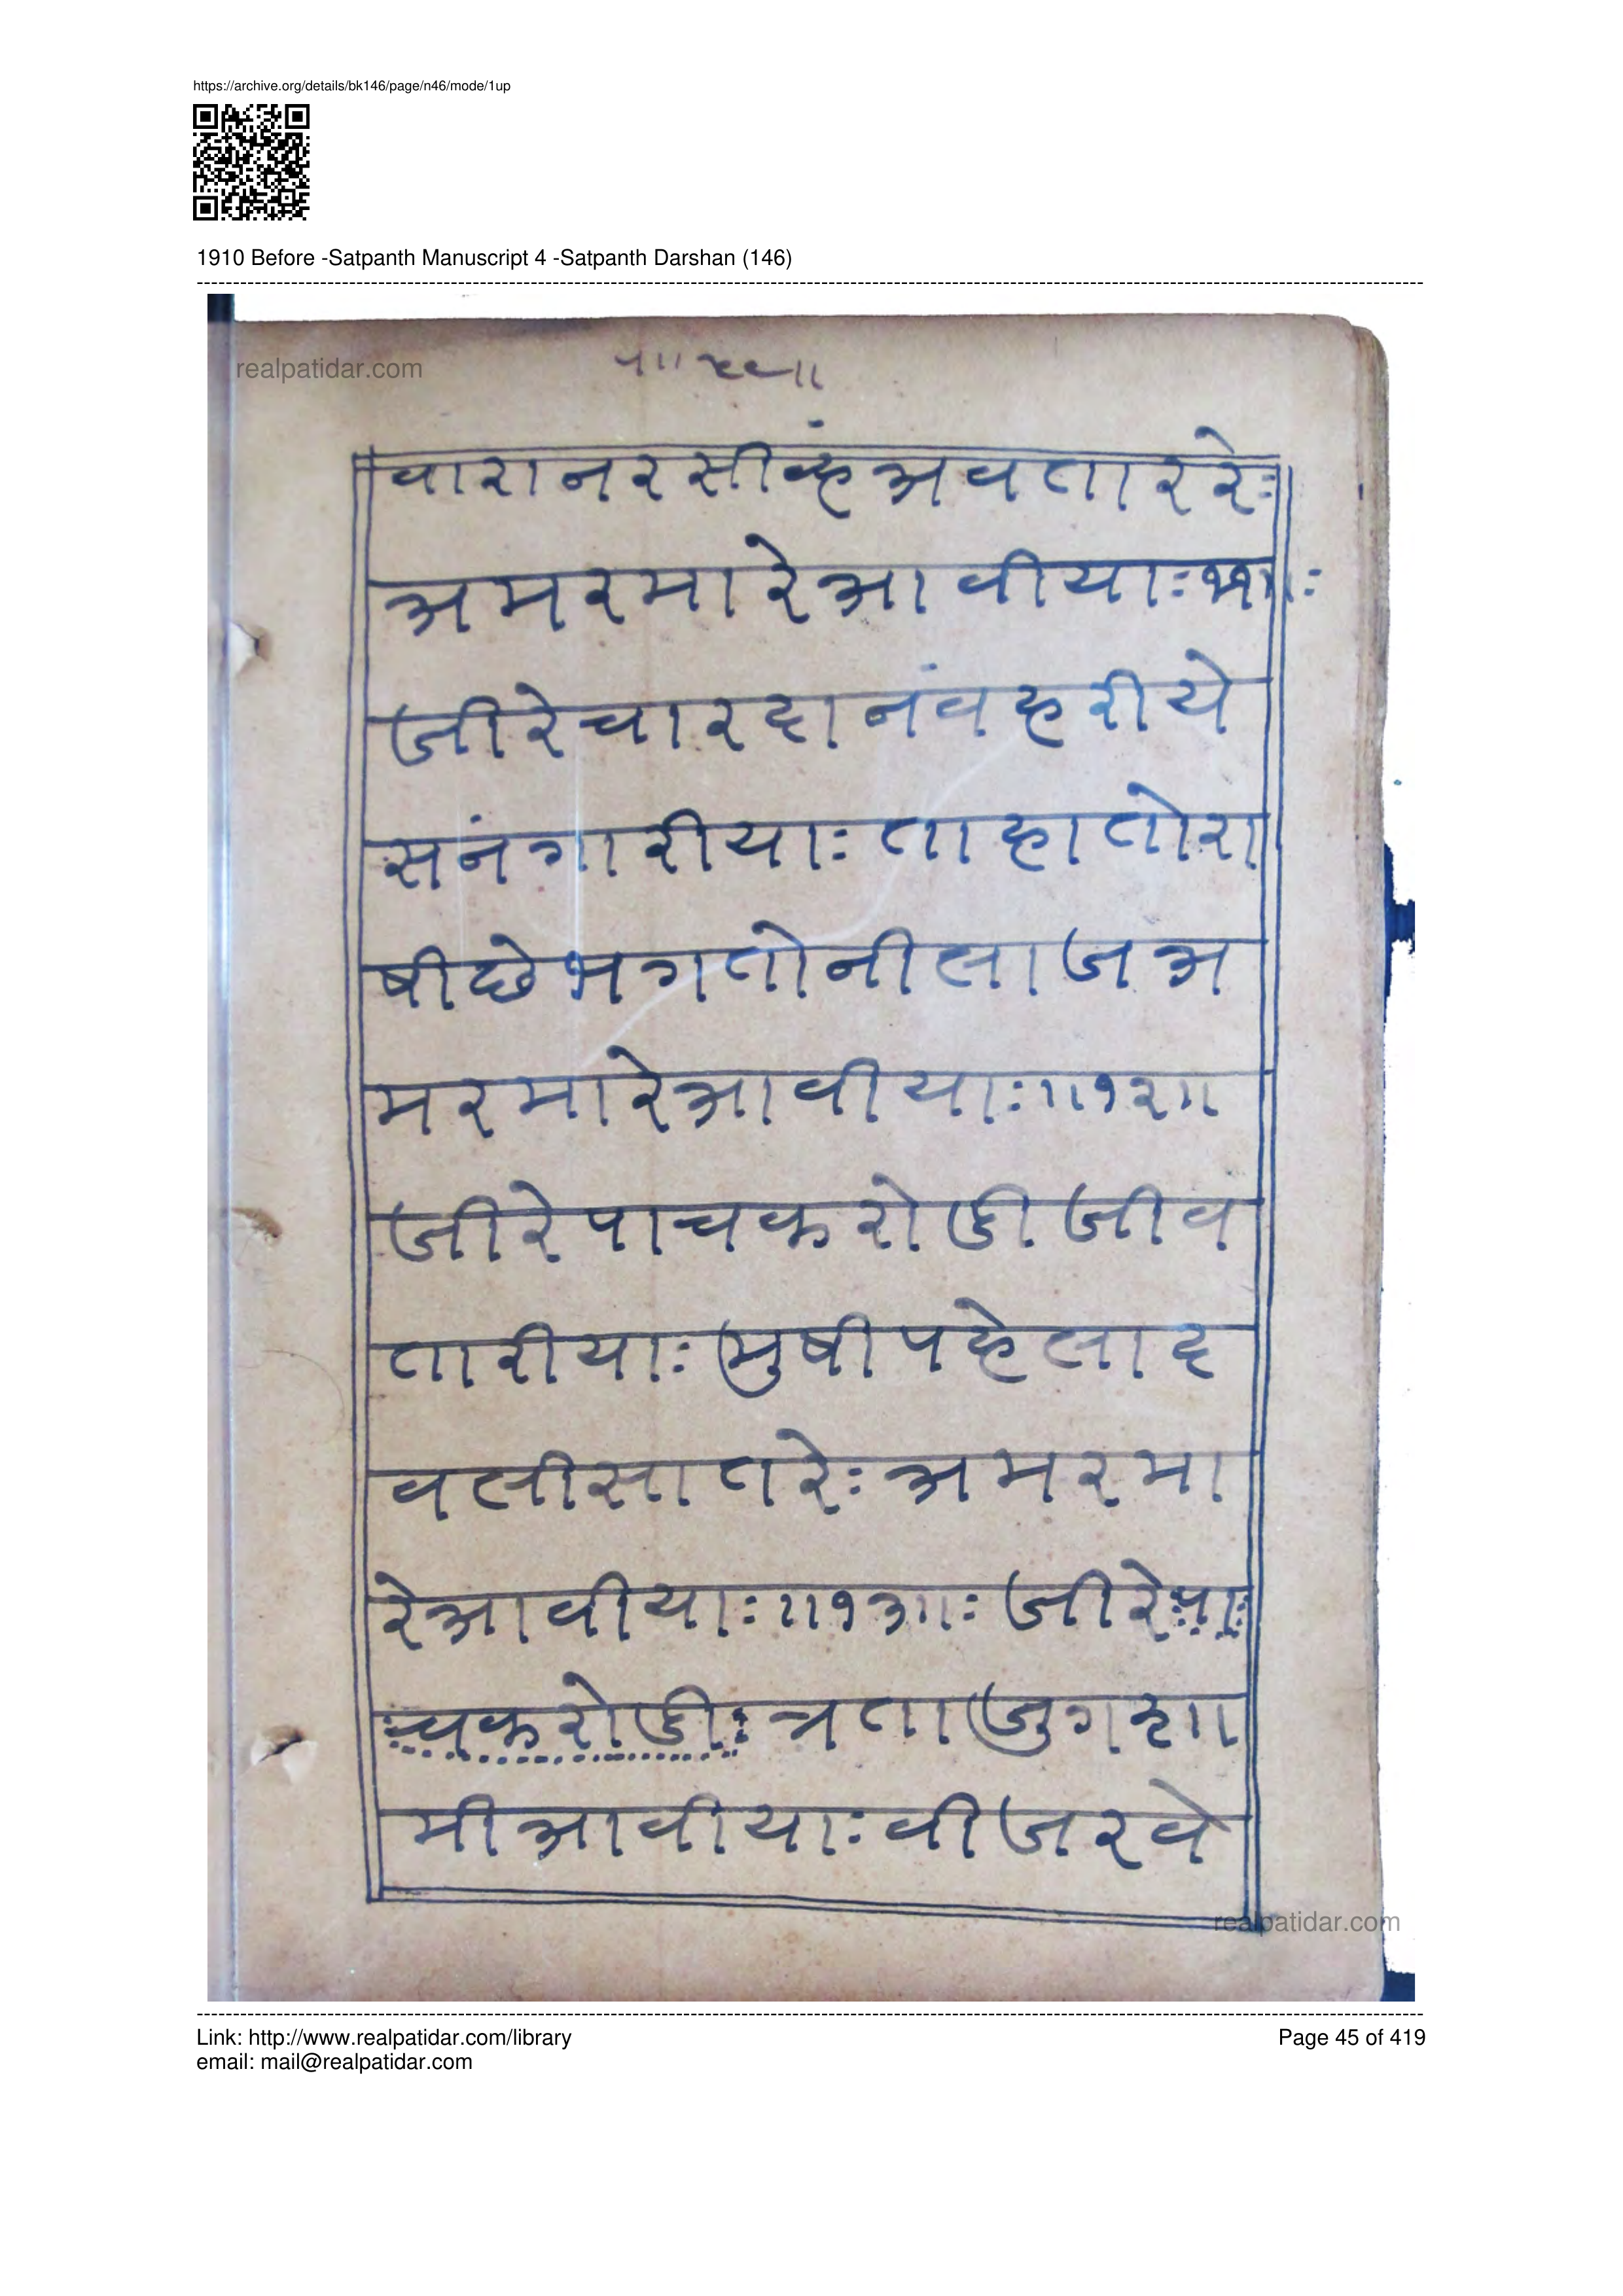 https://archive.org/details/bk146/page/n46/mode/1up
1910 Before -Satpanth Manuscript 4 -Satpanth Darshan (146)
realpatidar.com
वारानरसींव्हअवताररेः
अमरमारेआवीयाः११॥ः
जीरेचारदानंवहरीये
सनंगारीयाः ताहातोरा
षीछेभगतोनीलाजअ
मरमारेआवीयाः॥१२॥
जीरेपाचकरोडीजीव
तारीयाः मुषीपहेलाद
वलीसातरेः अमरमा
रेआवीयाः॥१३॥ः जीरेपा
चकरोडीः त्रताजुगह्मा
मीआवीयाः वीजरवे
realpatidar.com
Link: http://www.realpatidar.com/library
Page 45 of 419
email: mail@realpatidar.com